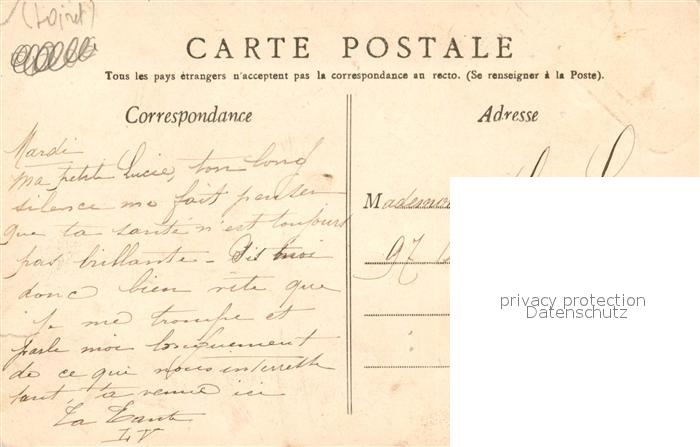 (Loiret)
CARTE POSTALE
Tous les pays étrangers n'acceptent pas la correspondance au recto. (Se renseigner à la Poste).
Correspondance
Adresse
Mardi
Ma petite Lucie, ton long
silence me fait penser
que ta santé n'est toujours
pas brillante - Dis moi
donc bien vite que
je me trompe et
parle moi longuement
de ce qui nous intéresse
tant, ta venue ici
Ta Tante
97
privacy protection
Datenschutz